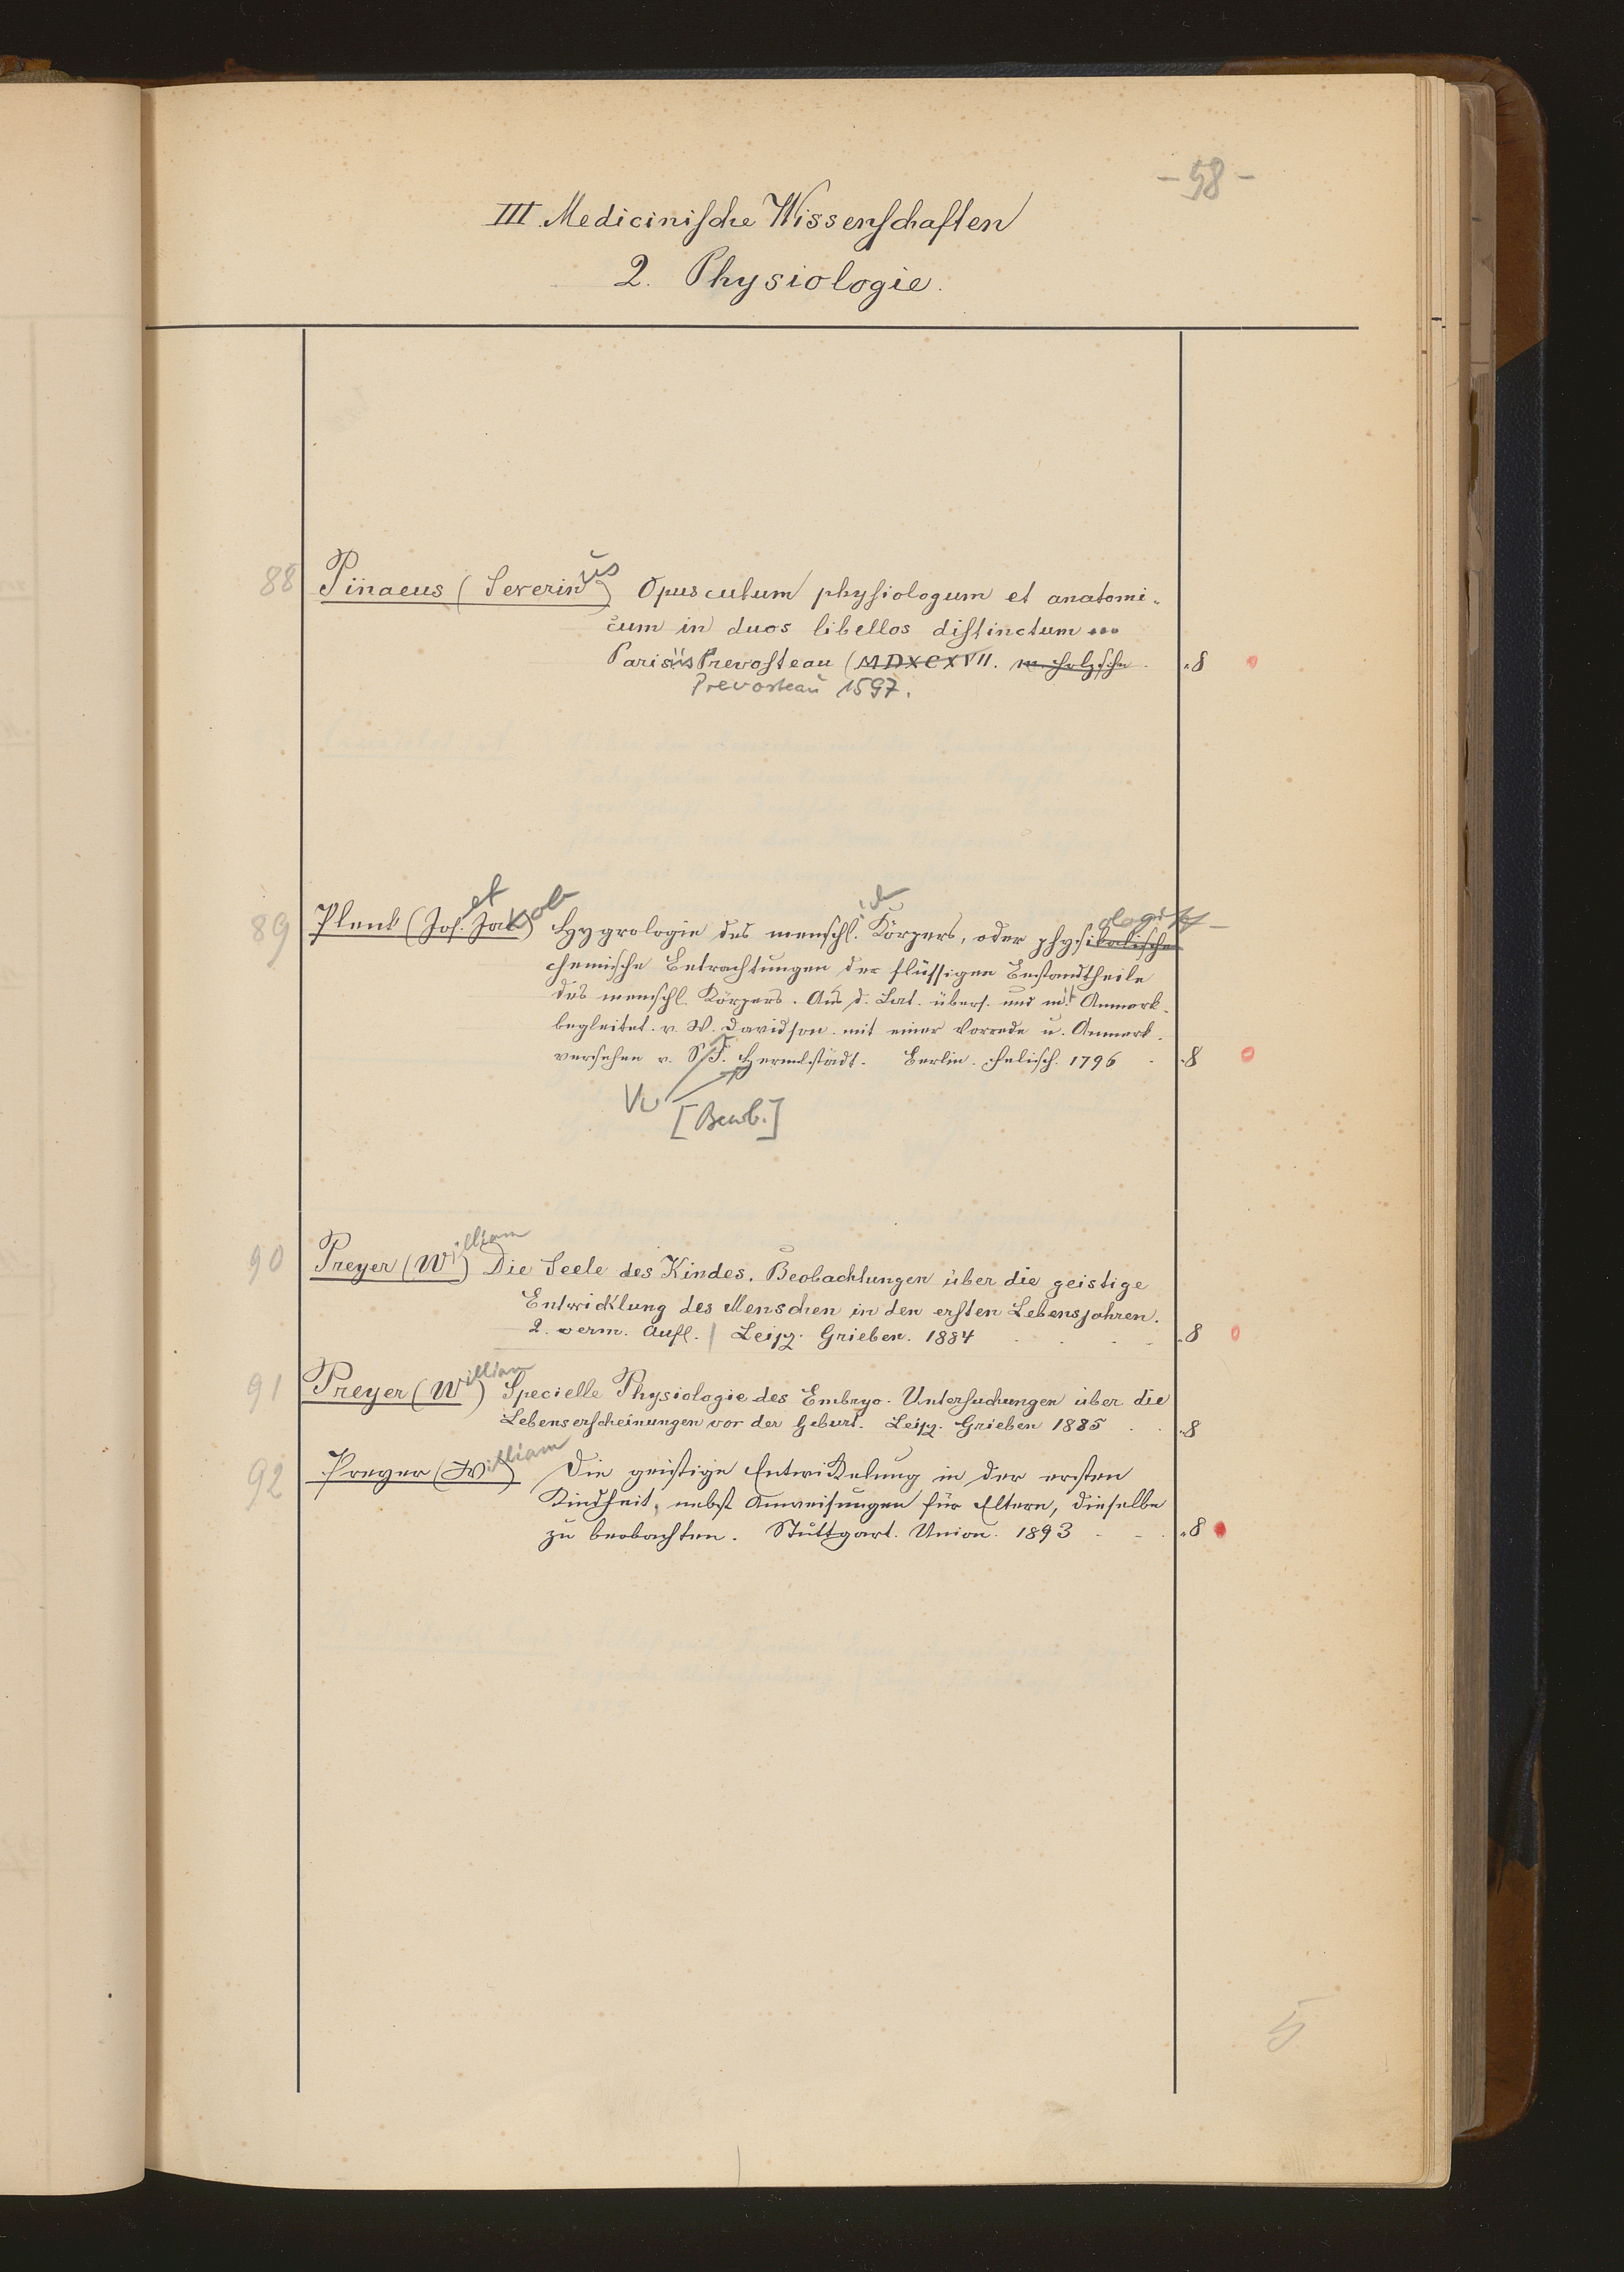 - 58 -
III. Medicinische Wissenschaften
2. Physiologie.
88 Pinaeus (Severinus) Opusculum physiologum et anatomi-
cum in duos libellos distinctum ...
Parisiis Prevosteau (MDXCXVII. m. Holzschn. 8
Prevosteau 1597.
89 Plenk (Josef Jakob) Hygrologie des menschl. Körpers, oder physikalische
ologisch-
chemische Betrachtungen der flüssigen Bestandtheile
des menschl. Körpers. Aus d. Lat. übers. und mit Anmerk.
begleitet v. W. Davidson mit einer Vorrede u. Anmerk.
versehen v. S. F. Hermbstädt. Berlin. Felisch. 1796 8
[Bearb.]
90 Preyer (William) Die Seele des Kindes. Beobachtungen über die geistige
Entwicklung des Menschen in den ersten Lebensjahren.
2. verm. Aufl. | Leipz. Grieben. 1884 8
91 Preyer (William) Specielle Physiologie des Embryo. Untersuchungen über die
Lebenserscheinungen vor der Geburt. Leipz. Grieben 1885 8
92 Preyer (William) Die geistige Entwickelung in der ersten
Kindheit, nebst Anweisungen für Eltern, dieselbe
zu beobachten. Stuttgart. Union. 1893 8
5